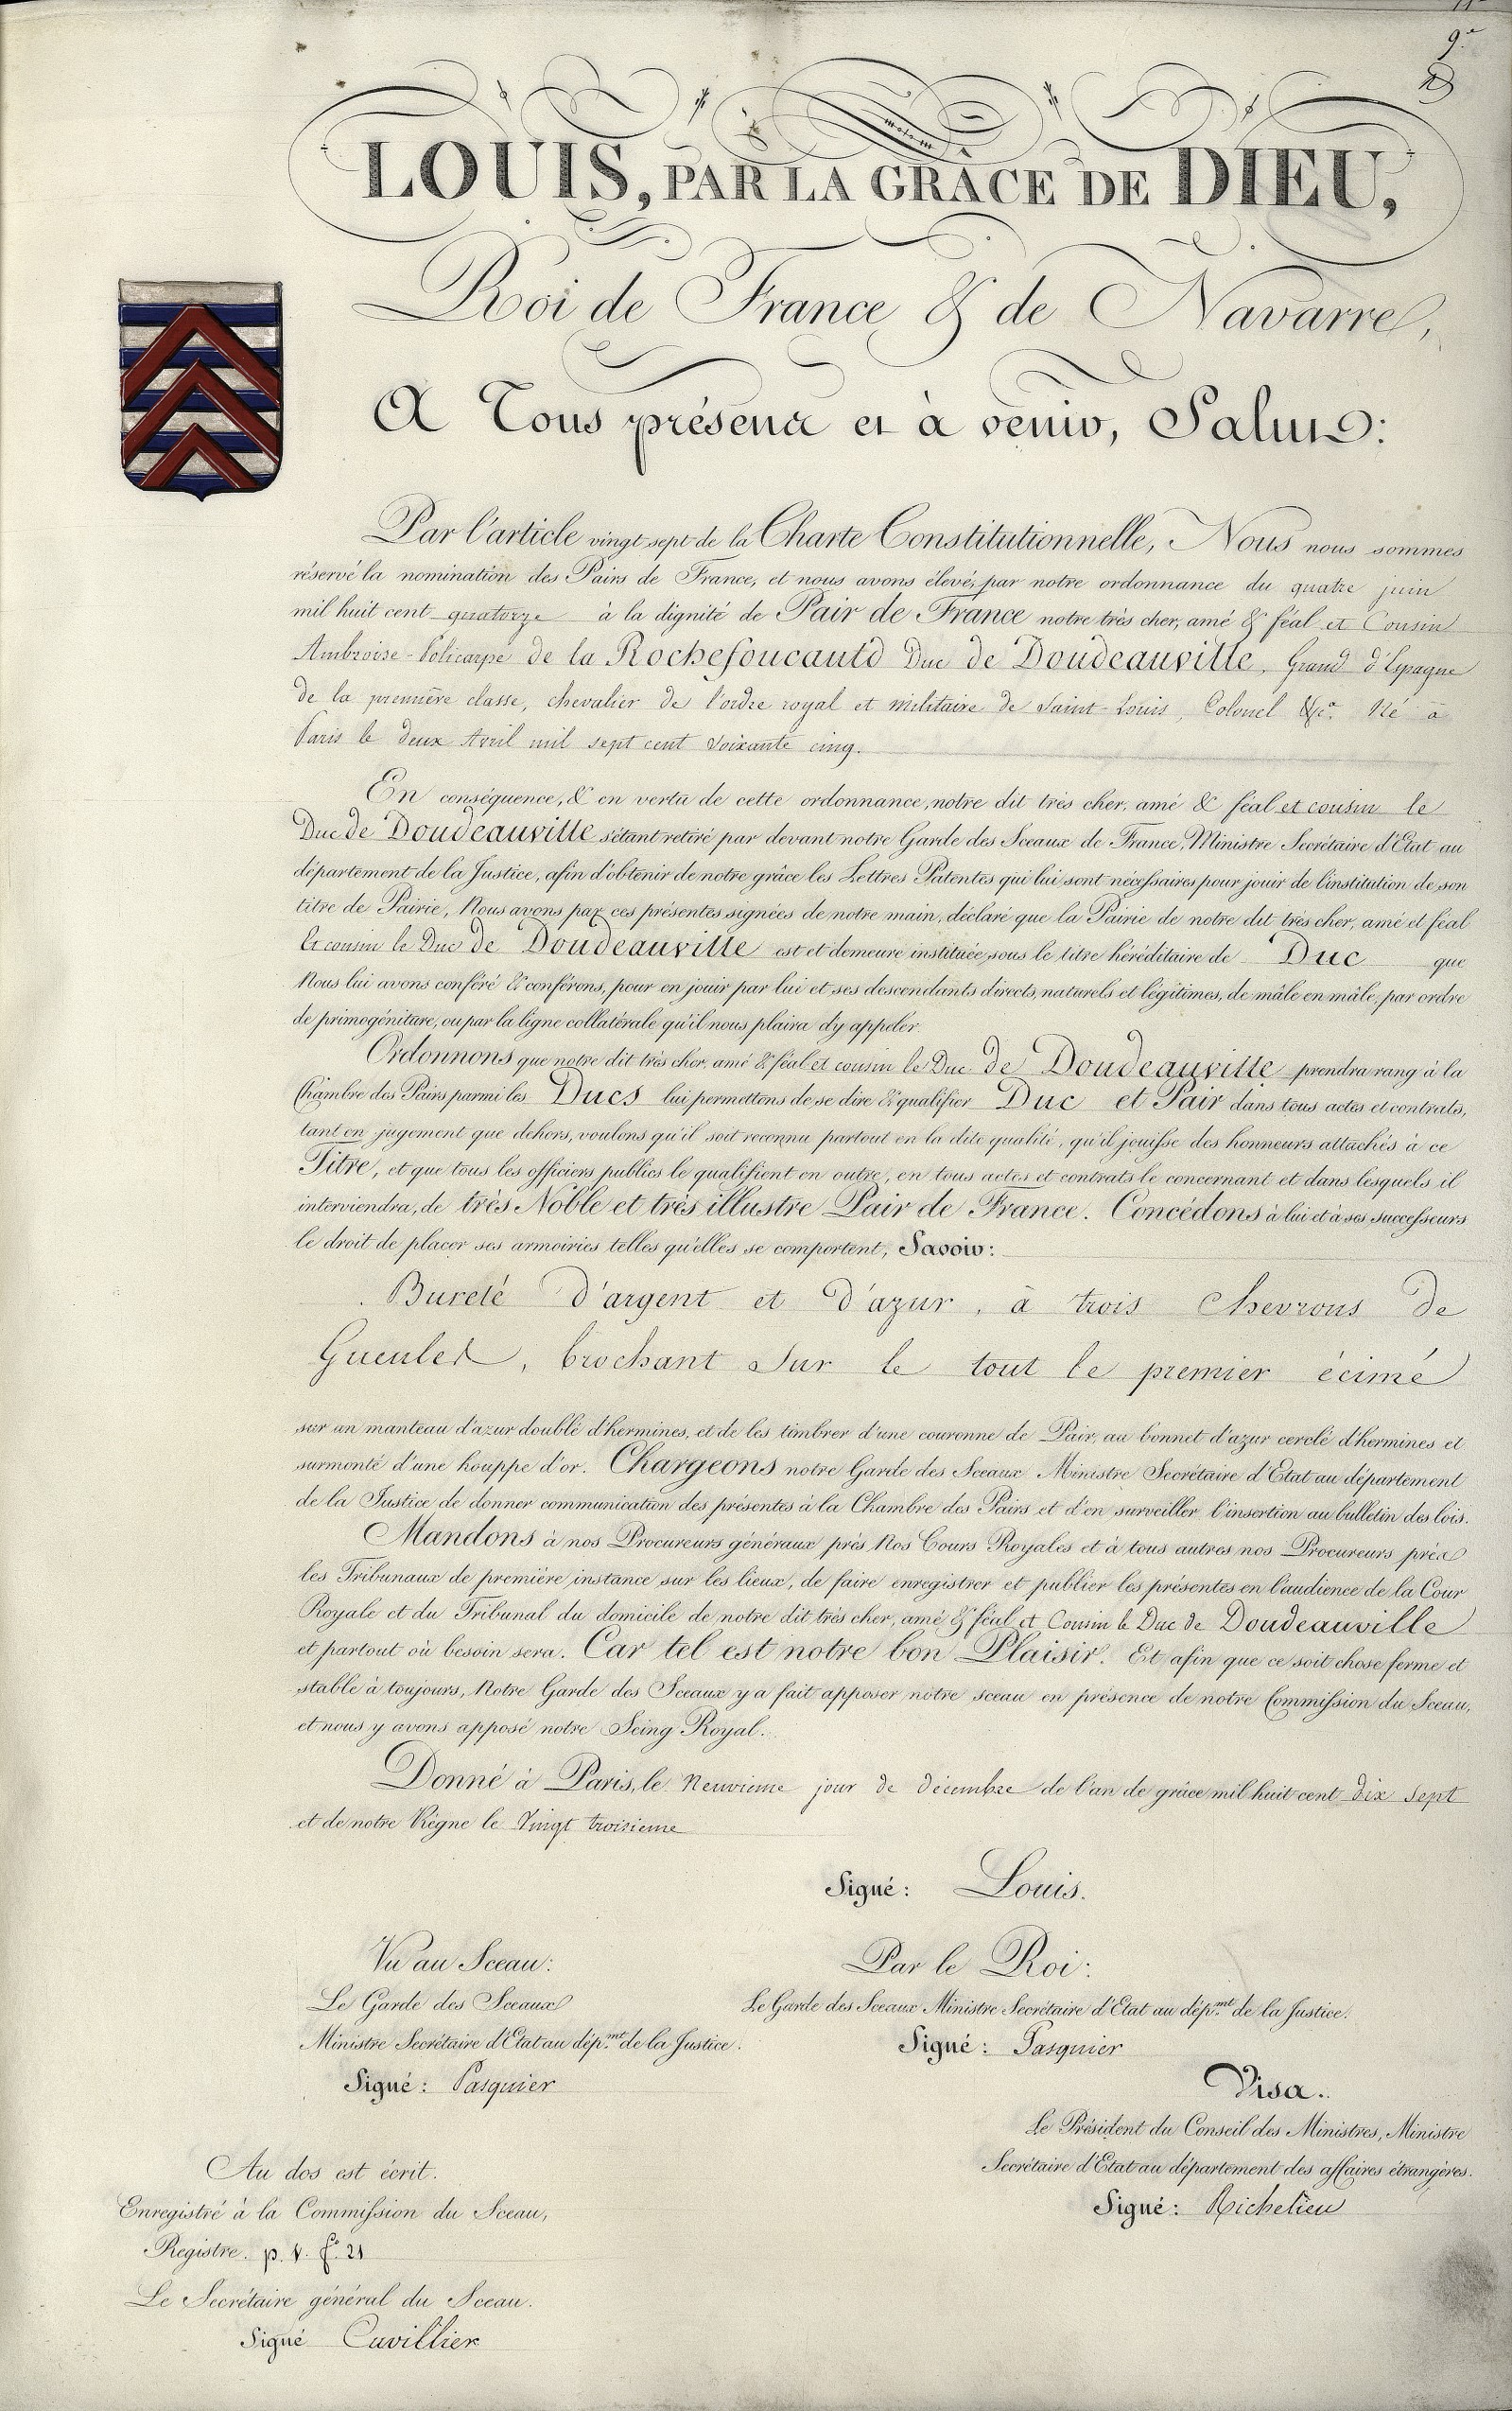 9.e
LOUIS, PAR LA GRÂCE DE DIEU,
Roi de France & de Navarre,
A Tous présens et à venir, Salut:
Par l'article vingt-sept de la Charte Constitutionnelle, Nous nous sommes
réservé la nomination des Pairs de France, et nous avons élevé, par notre ordonnance du quatre juin
mil huit cent quatorze à la dignité de Pair de France notre très cher, amé & féal et Cousin
Ambroise-Policarpe de la Rochefoucauld Duc de Doudeauville, Grand d'Espagne
de la première classe, chevalier de l'ordre royal et militaire de Saint-Louis, Colonel &ca. Né à
Paris le deux Avril mil sept cent soixante cinq.
En conséquence, & en vertu de cette ordonnance, notre dit très cher, amé & féal et cousin le
Duc de Doudeauville s'étant retiré par devant notre Garde des Sceaux de France, Ministre Secrétaire d'Etat au
département de la Justice, afin d'obtenir de notre grâce les Lettres Patentes qui lui sont nécessaires pour jouir de l'institution de son
titre de Pairie, Nous avons par ces présentes signées de notre main, déclaré que la Pairie de notre dit très cher, amé et féal
Et cousin le Duc de Doudeauville est et demeure instituée sous le titre héréditaire de Duc que
Nous lui avons conféré & conférons, pour en jouir par lui et ses descendants directs, naturels et légitimes, de mâle en mâle, par ordre
de primogéniture, ou par la ligne collatérale qu'il nous plaira d'y appeler.
Ordonnons que notre dit très cher, amé & féal et cousin le Duc de Doudeauville prendra rang à la
Chambre des Pairs parmi les Ducs lui permettons de se dire & qualifier Duc et Pair dans tous actes et contrats,
tant en jugement que dehors, voulons qu'il soit reconnu partout en la dite qualité, qu'il jouisse des honneurs attachés à ce
Titre, et que tous les officiers publics le qualifient en outre, en tous actes et contrats le concernant et dans lesquels il
interviendra, de très Noble et très illustre Pair de France. Concédons à lui et à ses successeurs
le droit de placer ses armoiries telles qu'elles se comportent, Savoir:
Burelé d'argent et d'azur, à trois Chevrons de
Gueules, brochant sur le tout le premier écimé
sur un manteau d'azur doublé d'hermines, et de les timbrer d'une couronne de Pair, au bonnet d'azur cerclé d'hermines et
surmonté d'une houppe d'or. Chargeons notre Garde des Sceaux Ministre Secrétaire d'Etat au département
de la Justice de donner communication des présentes à la Chambre des Pairs et d'en surveiller l'insertion au bulletin des lois.
Mandons à nos Procureurs généraux près Nos Cours Royales et à tous autres nos Procureurs près
les Tribunaux de première instance sur les lieux, de faire enregistrer et publier les présentes en l'audience de la Cour
Royale et du Tribunal du domicile de notre dit très cher, amé & féal et Cousin le Duc de Doudeauville
et partout où besoin sera. Car tel est notre bon Plaisir. Et afin que ce soit chose ferme et
stable à toujours, Notre Garde des Sceaux y a fait apposer notre sceau en présence de notre Commission du Sceau,
et nous y avons apposé notre Seing Royal.
Donné à Paris, le Neuvieme jour de décembre de l'an de grâce mil huit cent dix sept
et de notre Règne le Vingt troisieme
Signé: Louis.
Vu au Sceau: Par le Roi:
Le Garde des Sceaux Le Garde des Sceaux Ministre Secrétaire d'Etat au dép.mt de la Justice.
Ministre Secrétaire d'Etat au dép.mt de la Justice. Signé: Pasquier
Signé: Pasquier Visa.
Le Président du Conseil des Ministres, Ministre
Au dos est écrit. Secrétaire d'Etat au département des affaires étrangères.
Enregistré à la Commission du Sceau, Signé: Richelieu
Registre. p. V. f.o 21
Le Secrétaire général du Sceau.
Signé Cuvillier